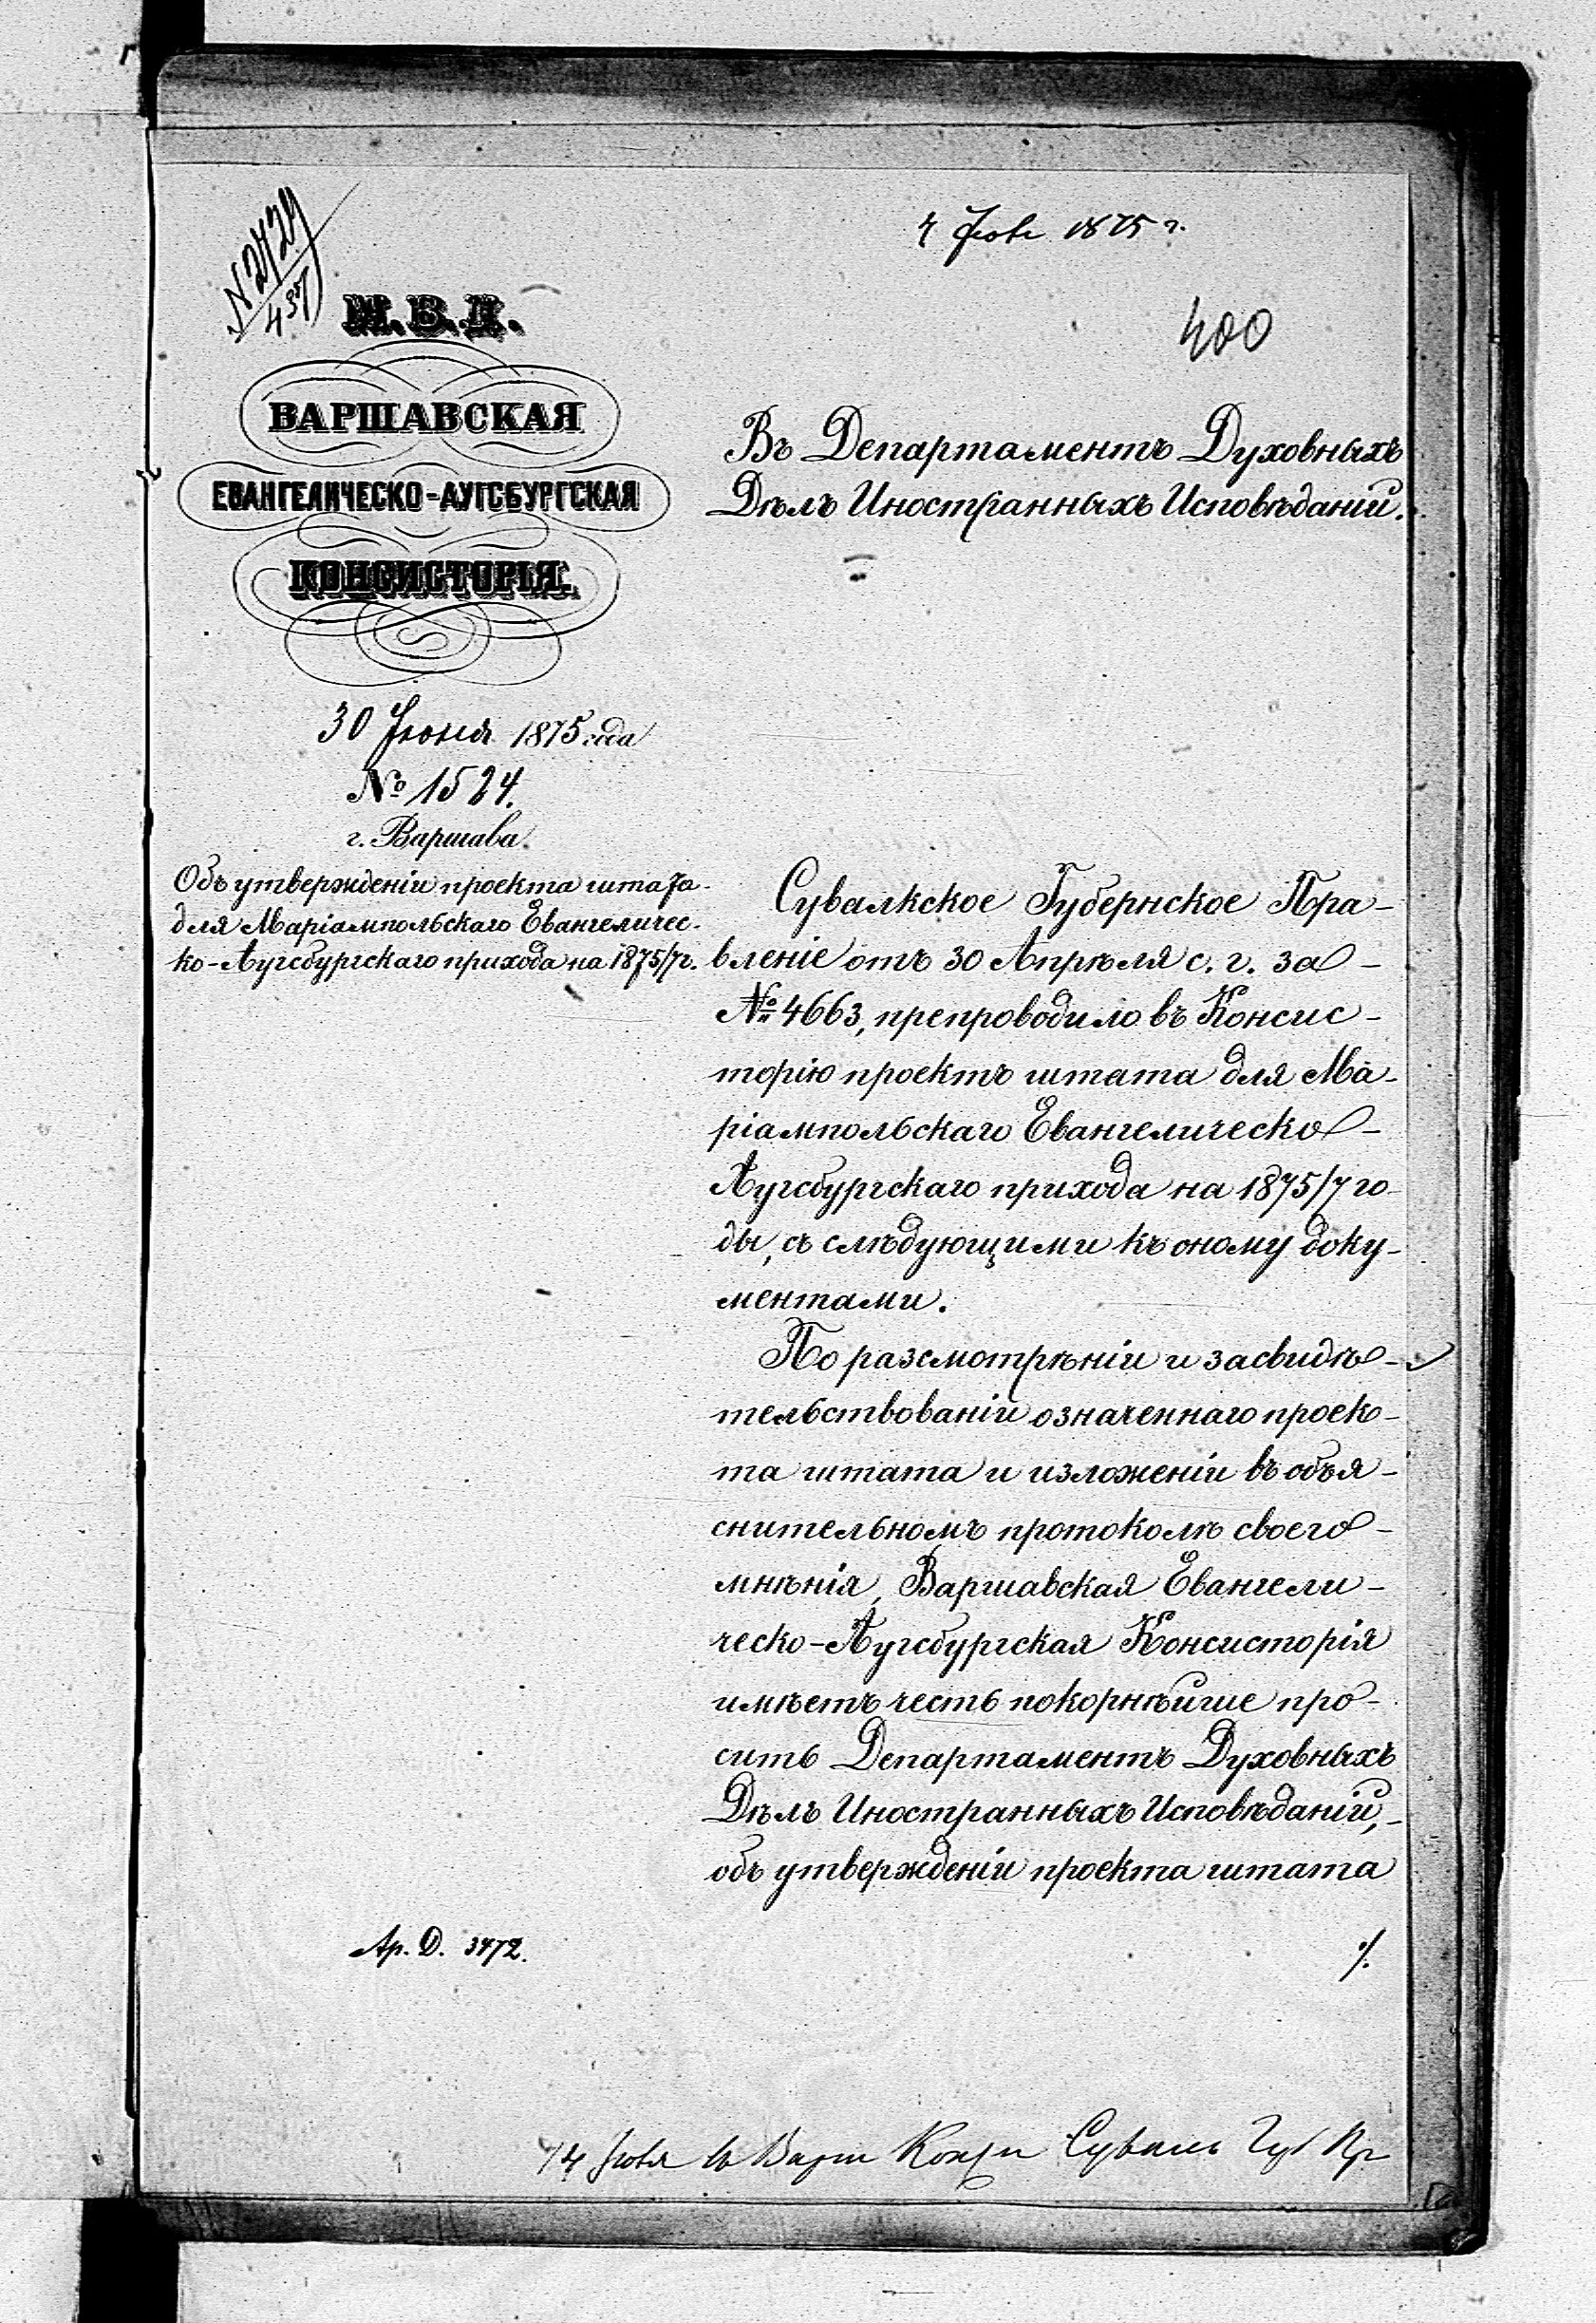 № 2727
437
4 Июля 1875 г.
400
М.В.Д.
ВАРШАВСКАЯ
ЕВАНГЕЛИЧЕСКО-АУГСБУРГСКАЯ
КОНСИСТОРІЯ.
30 Іюня 1875 года
№ 1524.
г. Варшава.
Объ утвержденіи проекта штата
для Маріампольскаго Евангеличес-
ко-Аугсбургскаго прихода на 1875/7 г.
Въ Департаментъ Духовныхъ
Дѣлъ Иностранныхъ Исповѣданій.
Сувалкское Губернское Пра-
вленіе отъ 30 Апрѣля с. г. за
№ 4663, препроводило въ Консис-
торію проектъ штата для Ма-
ріампольскаго Евангелическо-
Аугсбургскаго прихода на 1875/7 го-
ды, съ слѣдующими къ оному доку-
ментами.
По разсмотрѣніи и засвидѣ-
тельствованіи означеннаго проек-
та штата и изложеніи въ объя-
снительномъ протоколѣ своего
мнѣнія, Варшавская Евангели-
ческо-Аугсбургская Консисторія
имѣетъ честь покорнѣйше про-
сить Департаментъ Духовныхъ
Дѣлъ Иностранныхъ Исповѣданій,
объ утвержденіи проекта штата
Ар. Д. 3472.
./.
14 Іюля Варш Конс Сувалк Губ Пр